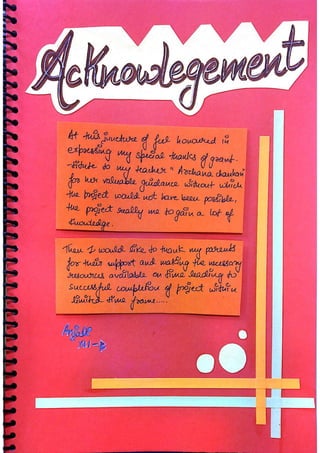 Acknowlegement
At this juncture of feel honoured in
expressing my special thanks of grant-
-titute to my teacher "Archana chauhan"
for her valuable guidance without which
the project would not have been possible,
the project really me to gain a lot of
knowledge.
Then I would like to thank my parents
for their support and making the necessary
resources available on time leading to
successful completion of project within
limited time frame.....